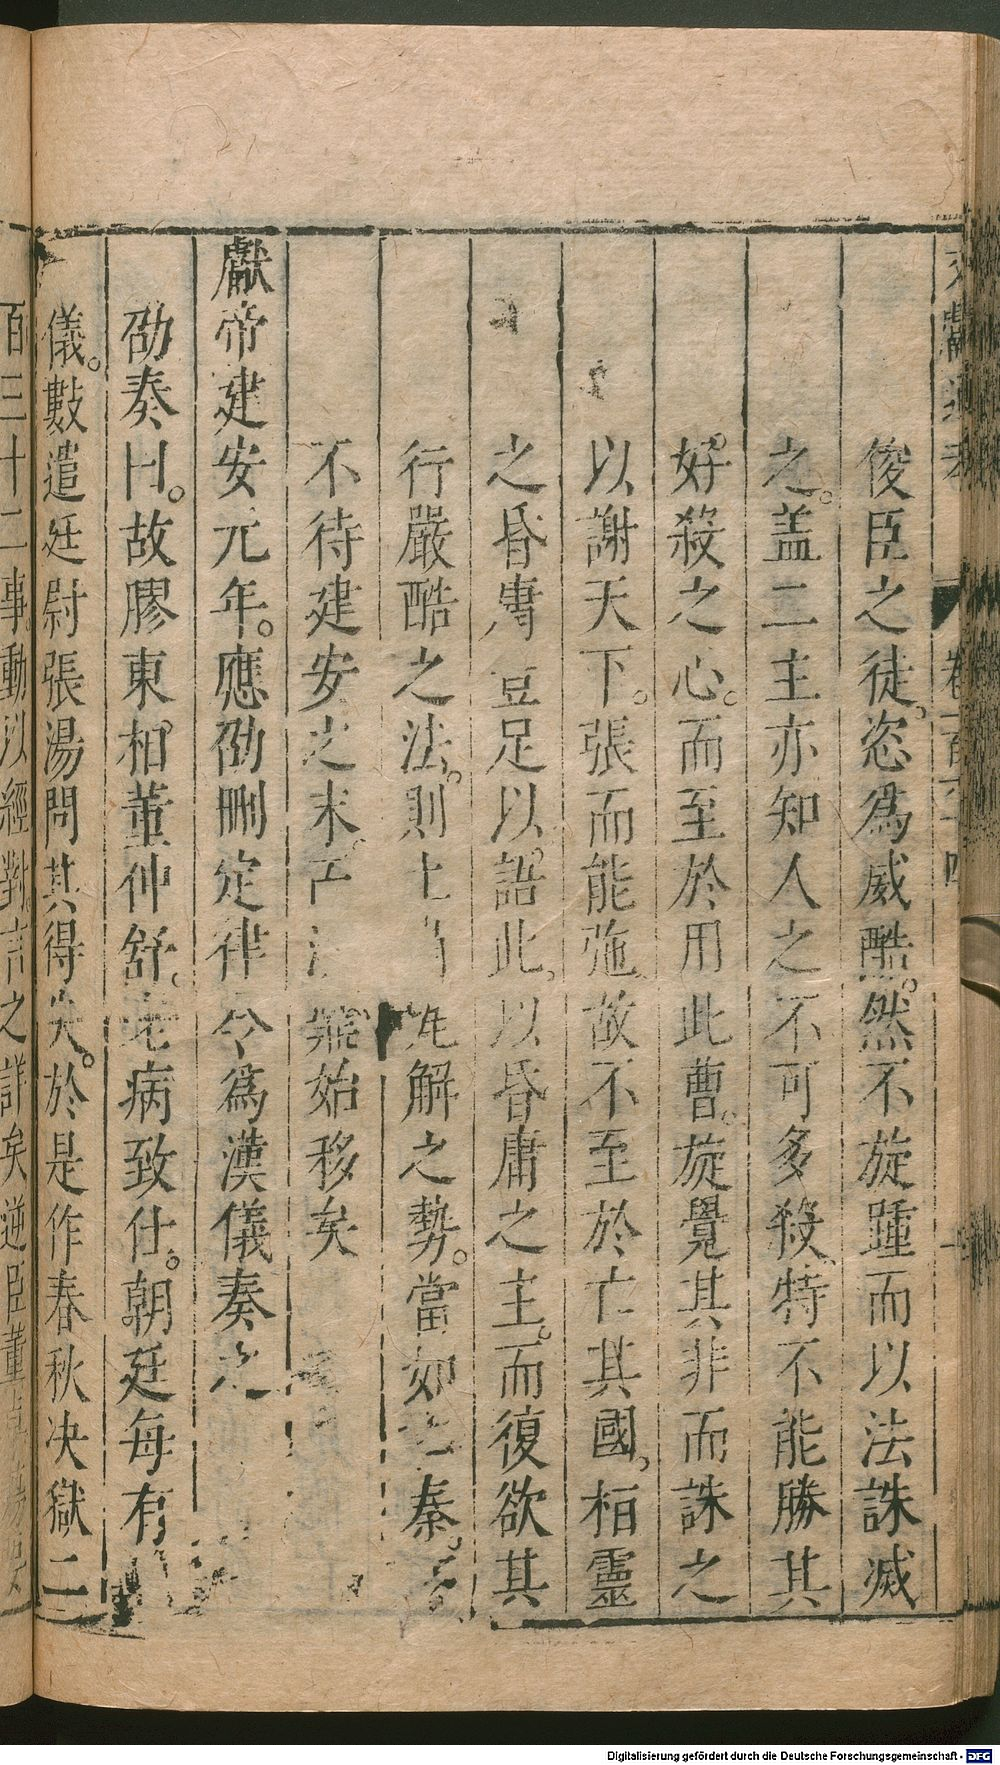 俊臣之徒恣爲威酷。然不旋踵而以法誅滅
之。盖二主亦知人之不可多殺特不能勝其
好殺之心。而至於用此曹。旋覺其非而誅之
以謝天下。張而能弛故不至於亡其國桓靈
之昏庸豈足以語此以昏庸之主。而復欲其
行嚴酷之法。則土解之勢。當如秦。
不待建安之末始移矣
獻帝建安元年。應劭刪定律令爲漢儀奏之
劭奏曰。故膠東相董仲舒。老病致仕。朝廷每有
儀。數遣廷尉張湯問其得失。於是作春秋决獄二
百三十二事。動以經對。言之詳矣逆臣董
文獻通考
卷一百六十四
Digitalisierung gefördert durch die Deutsche Forschungsgemeinschaft - DFG